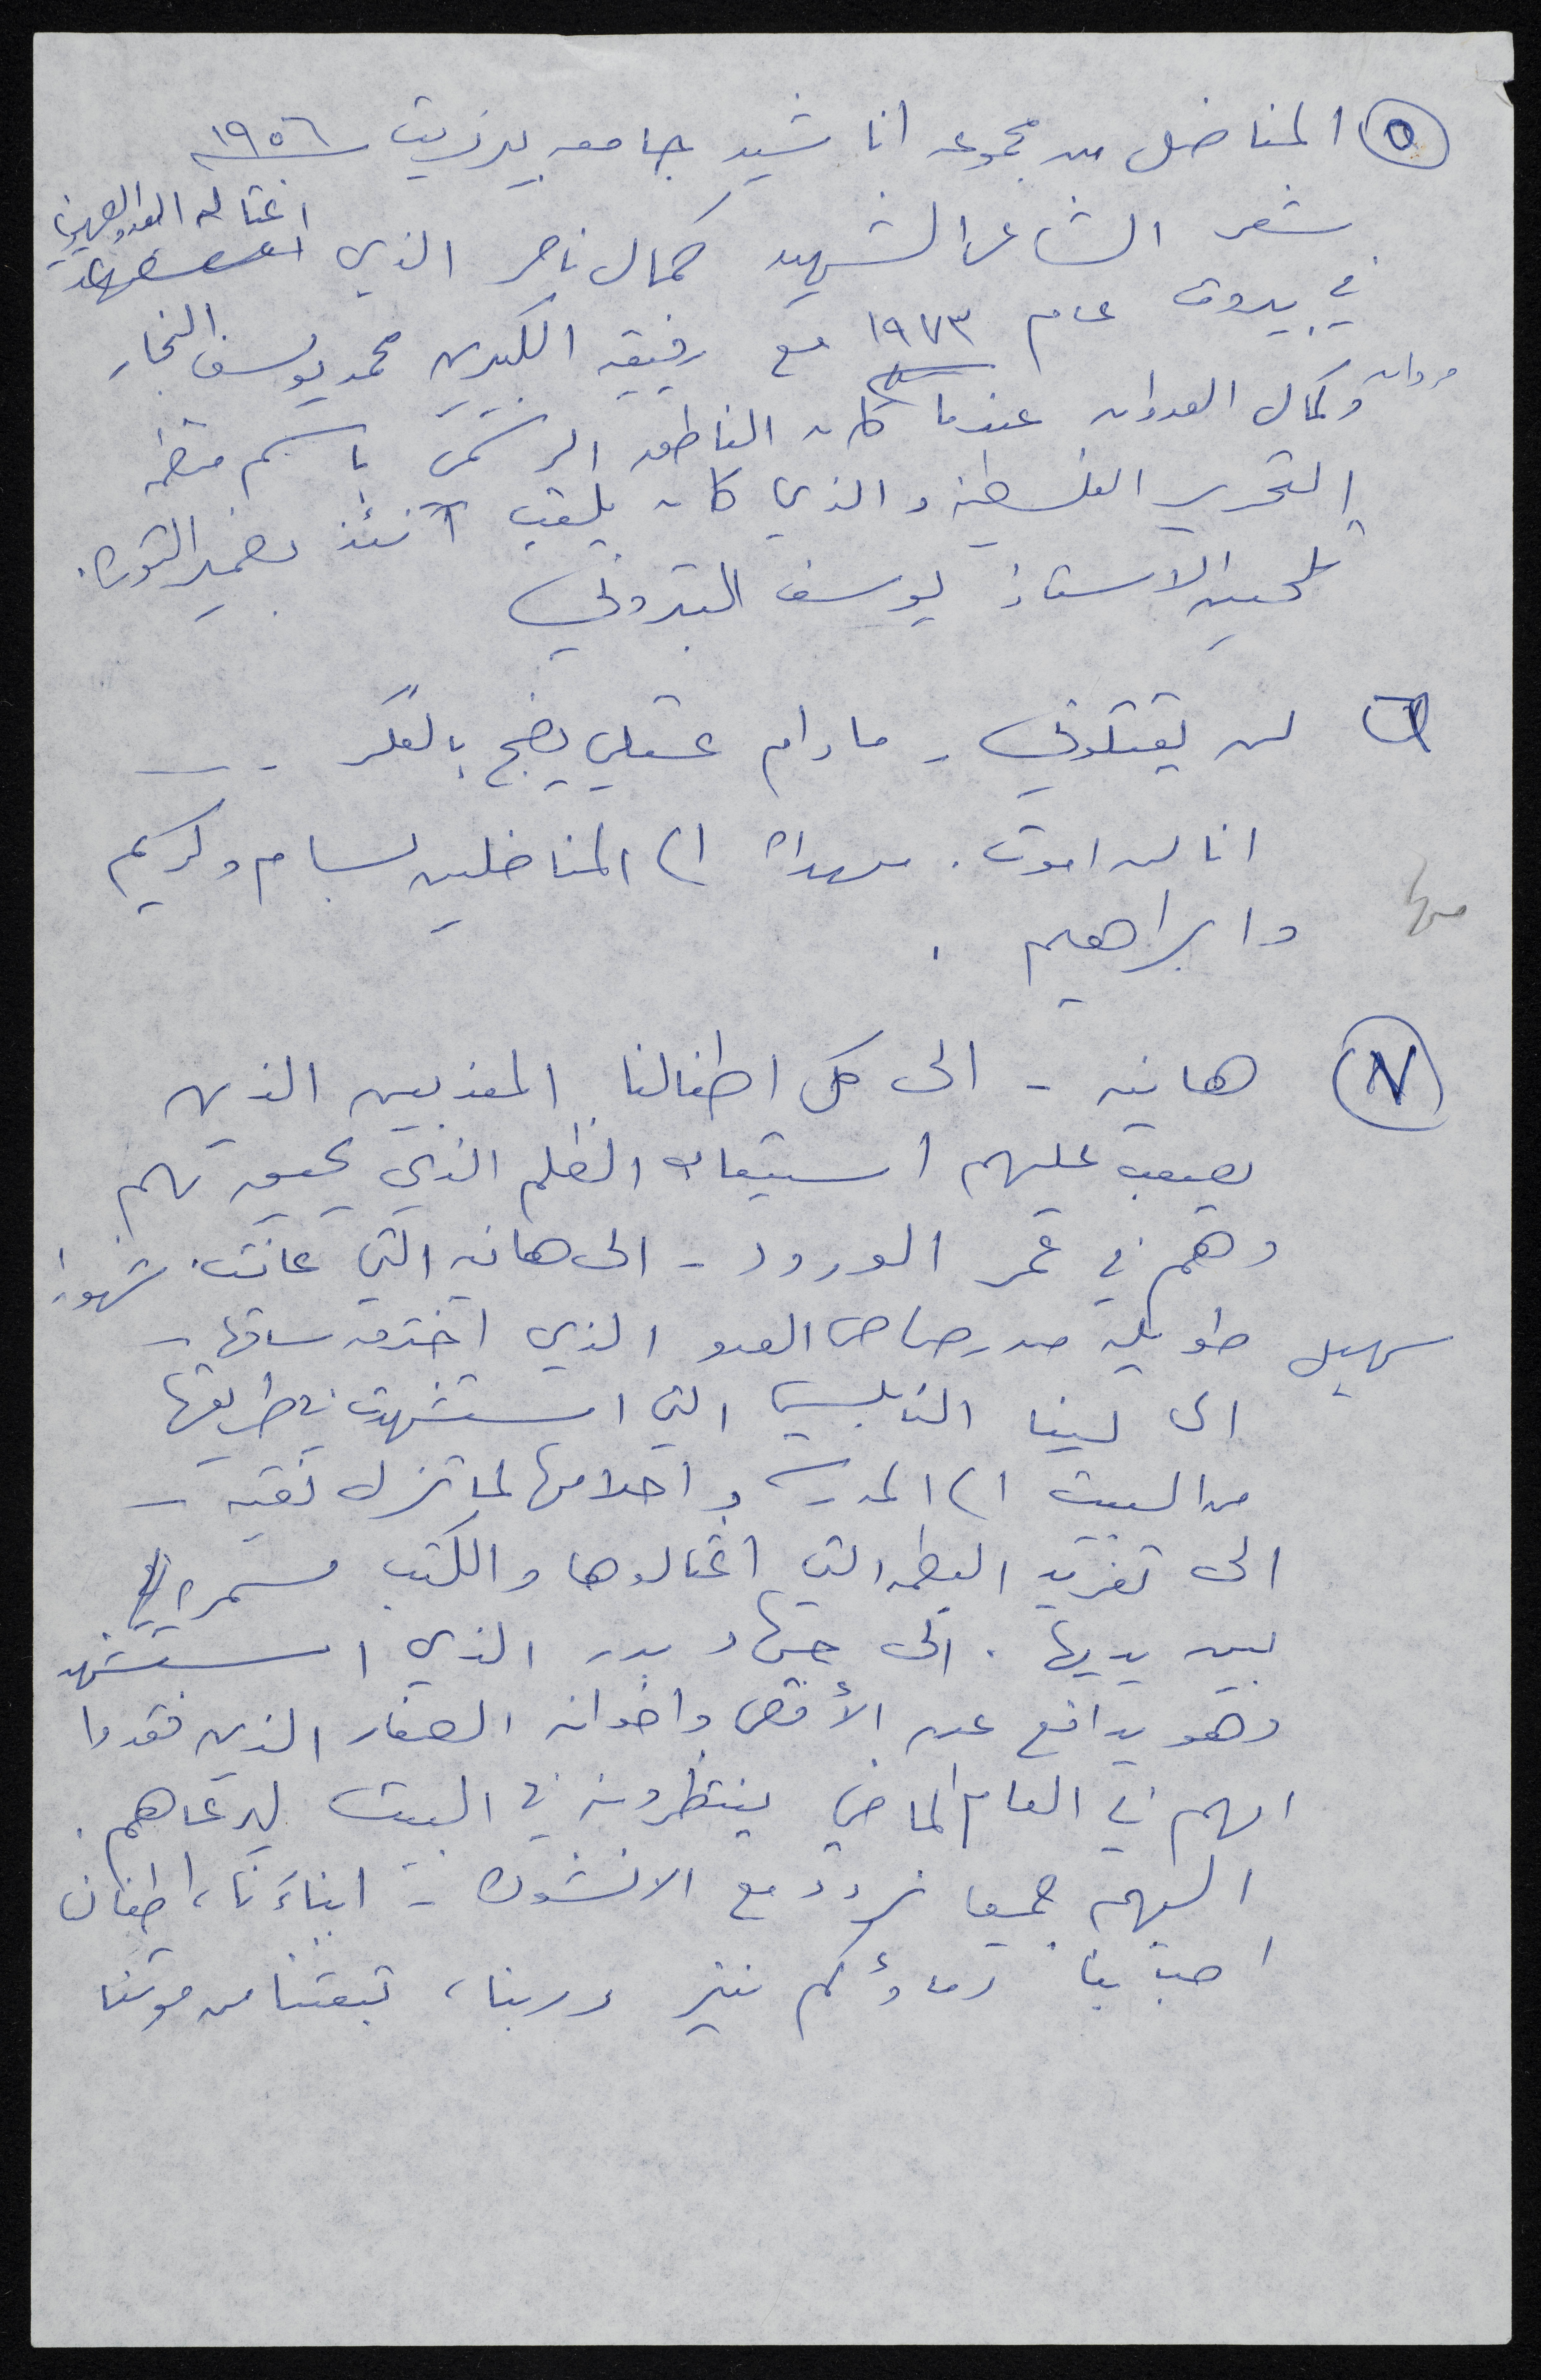 ٥ المناضل من مجموعه اناشيد جامعه بيرزيت ١٩٥٦
شعر الشاعر الشهيد كمال ناصر الذي اغتاله العدو الصهيوني
في بيروت عام ١٩٧٣ مع رفيقيه الكبيرين محمد يوسف النجار
وكمال العدوان عندما كان الناطق الرسمي باسم منظمة
مروان
التحرير الفلسطينيه والذي كان يلقب آنئذ بضمير الثوره.
تلحين الاستاذ يوسف البتروني
٦ لن يقتلوني - ما دام عقلي يضج بالفكر - -
انا لن اموت. مهداة الى المناضلين بسام وكريم
وابراهيم .
مها
٧ هانيه - الى كل اطفالنا المعذبين الذين
يصعب عليهم استيعاب الظلم الذي يحيق بهم
وهم في عمر الورود - الى هانيه التي عانت شهورا
طويله من رصاص العدو الذي اخترق ساقها -
سهيل
الى لينا النابلسي التي استشهدت في طريقها
من البيت الى المدرسه واحلامها لما تزل نقيه -
الى تغريد البطمه التي اغتالوها والكتب
بين يديها . الى جهاد بدر الذي استشهد
وهو يدافع عن الأقصى واخوانه الصغار الذين فقدوا
امهم في العام الماضي ينتظرونه في البيت ليرعاهم.
اليهم جميعا نردد مع الانشوده - ابناءَنا، اطفال
احبابنا دماؤكم تنير دربنا، تبعثنا من موتنا